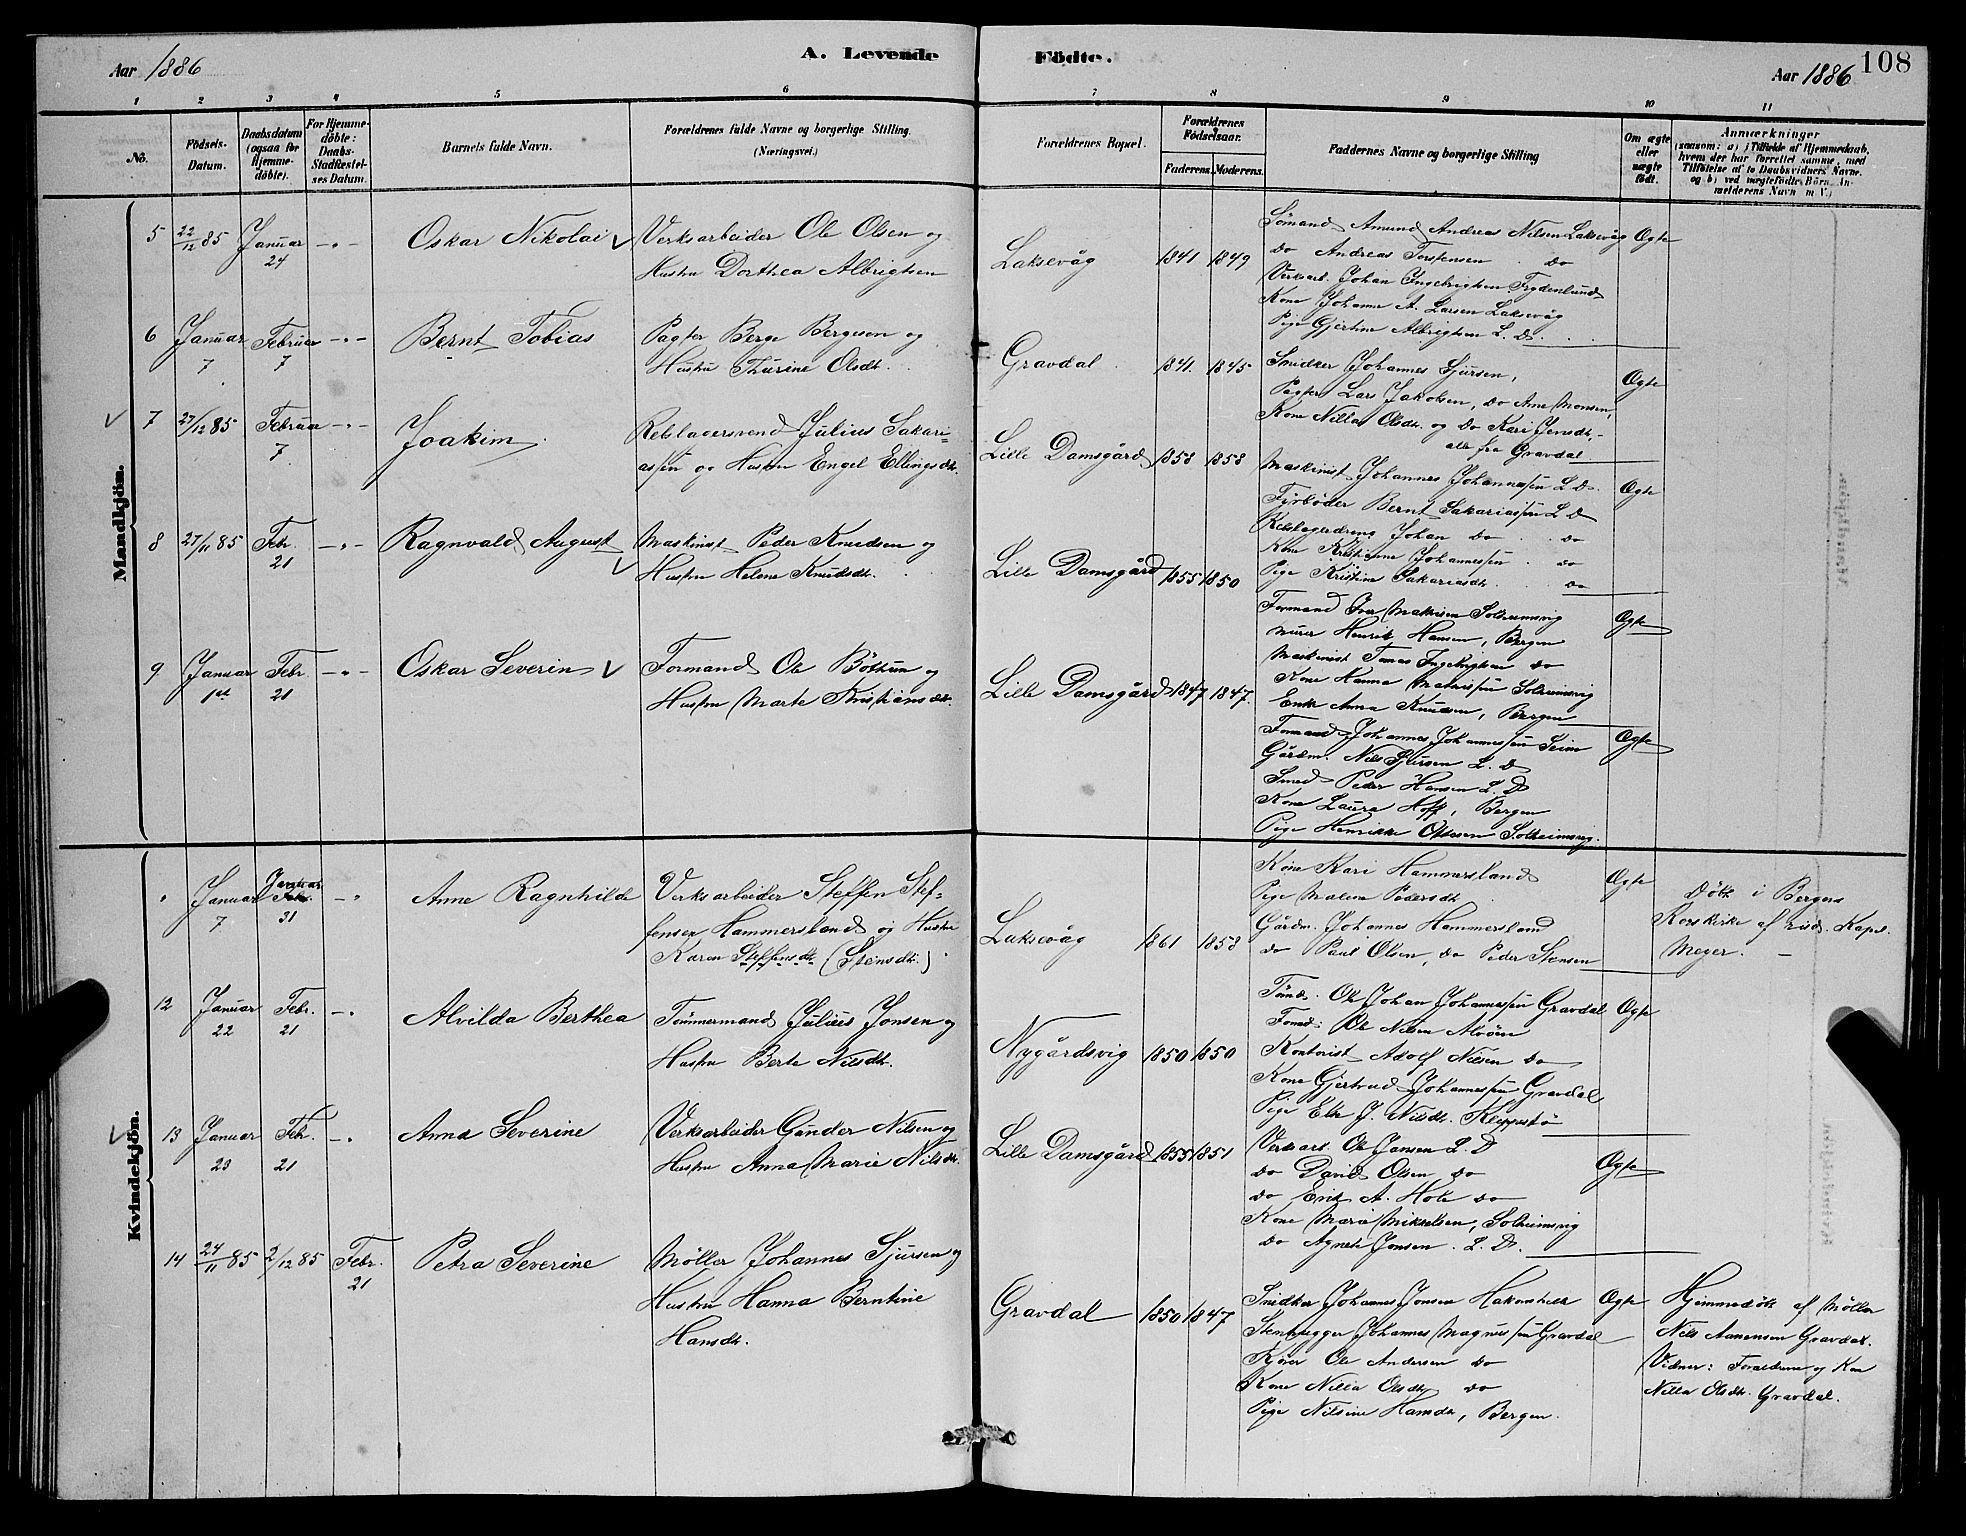 Aar 1886
A. Levende
Födte.
Aar 1886
108
1 2 3 4 5 6 7 8 9 10 11
No.
Födsels-
Datum.
Daabsdatum
(ogsaa for
Hjemme-
döbte).
For Hjemme-
döbte:
Daabs-
Stadfæstel-
ses Datum.
Barnets fulde Navn.
Forældrenes fulde Navne og borgerlige Stilling.
(Næringsvei.)
Forældrenes Bopæl.
Forældrenes
Födselsaar.
Faderens. Moderens.
Faddernes Navne og borgerlige Stilling
Om ægte
eller
uægte
födt.
Anmærkninger
(saasom: a) i Tilfælde af Hjemmedaab,
hvem der har forrettet samme, med
Tilföielse af to Daabsvidners Navne,
og b) ved uægtefödte Börn, An-
melderens Navn m. V.)
Mandkjön.
5 22/12 85 Januar 24 -"- Oskar Nikolai
Verksarbeider Ole Olsen og
Hustru Dorthea Albrigtsen
Laksevåg 1841 1849
Sømand Amund Andreas Nilsen Laksevåg
do Andreas Torstensen do
Verksarb. Johan Ingebrigtsen Frydenlund
Kone Johanna A. Larsen Laksevåg
Pige Gjertine Albrigtsen L. D.
Ægte
6 Januar 7 Februar 7 -"- Bernt Tobias
Pagter Berge Bergesen og
Hustru Thurine Olsdt.
Gravdal 1841. 1845
Snidker Johannes Sjursen,
Pagter Lars Jakobsen, do Arne Monsen,
Kone Nilla Olsdt. og do Kari Jensdt.,
alle fra Gravdal
Ægte
7 27/12 85 Februar 7 -"- Joakim
Rebslagersvend Julius Sakari-
assen og Hustru Engel Ellingsdt.
Lille Damsgård 1858 1858
Maskinist Johannes Johannessen L D.
Fyrbøder Bernt Sakariassen L D
Rebslagerdreng Johan do do
Kone Kristianne Johannessen do
Pige Kristine Sakariasdt. do
Ægte
8 27/11 85 Febr. 21 -"- Ragnvald August
Maskinist Peder Knudsen og
Hustru Helene Knudsdt.
Lille Damsgård 1855 1850
Formand Iver Mathisen Solheimsvig
Murer Henrik Hansen, Bergen
Maskinist Tomas Ingebrigtsen do
Kone Hanna Mathissen Solheimsvig
Enke Anna Knudsen, Bergen
Ægte
9 Januar 1st Febr. 21 -"- Oskar Severin
Formand Ole Böthun og
Hustru Marte Kristiansdt.
Lille Damsgård 1847 1847.
Formand Johannes Johannessen Seim
Gårdm. Nils Sjursen L. D
Smed Peder Hansen L. D
Kone Laura Hoff, Bergen
Pige Henrikke Olsen Solheimsvig.
Ægte
Kvindekjön.
" Januar 7 Januar 31 -" Anne Ragnhilde
Verksarbeider Steffen Stef-
fensen Hammersland og Hustru
Karen Steffensdt. (Stensdt.)
Laksevåg 1861 1858
Kone Kari Hammersland
Pige Malene Pedersdt.
Gårdm. Johannes Hammersland
do Paul Olsen, do Peder Stensen
Ægte
Döbt i Bergens
Korskirke af resid. Kapel.
Meyer.
12 Januar 22 Febr. 21 -". Alvilda Berthea
Tømmermand Julius Jonsen og
Hustru Berte Nilsdt.
Nygårdsvig 1850 1850
Tømd. Ole Johan Johannessen Gravdal
Formd. Ole Nilsen Alvöen
Kontorist Adolf Nilsen do
Kone Gjertrud Johannessen Gravdal
Pige Elk J. Nilsdt. Kleppestø
Ægte
13 Januar 23 Febr. 21 -". Anna Severine
Verksarbeider Gunder Nilsen og
Hustru Anna Marie Nilsdt.
Lille Damsgård 1855 1851
Verksarb. Ole Jansen L. D
do David Olsen do
do Erik A. Hole do
Kone Marie Mikkelsen, Solheimsvig
do Agnete Jonsen. L. D.
Ægte
14 24/11 85 2/12 85 Febr. 21 Petra Severine
Møller Johannes Sjursen og
Hustru Hanna Berntine
Hansdt.
Gravdal 1850 1847
Snidker Johannes Jonsen Hakonshella
Stenhugger Johannes Magnussen Gravdal
Kjører Ole Andersen do
Kone Nilla Olsdt do
Pige Nilsine Hansdt, Bergen.
Ægte
Hjemmedöbt af Møller
Nils Aanensen Gravdal.
Vidner: Forældrene og Kone
Nilla Olsdt. Gravdal.